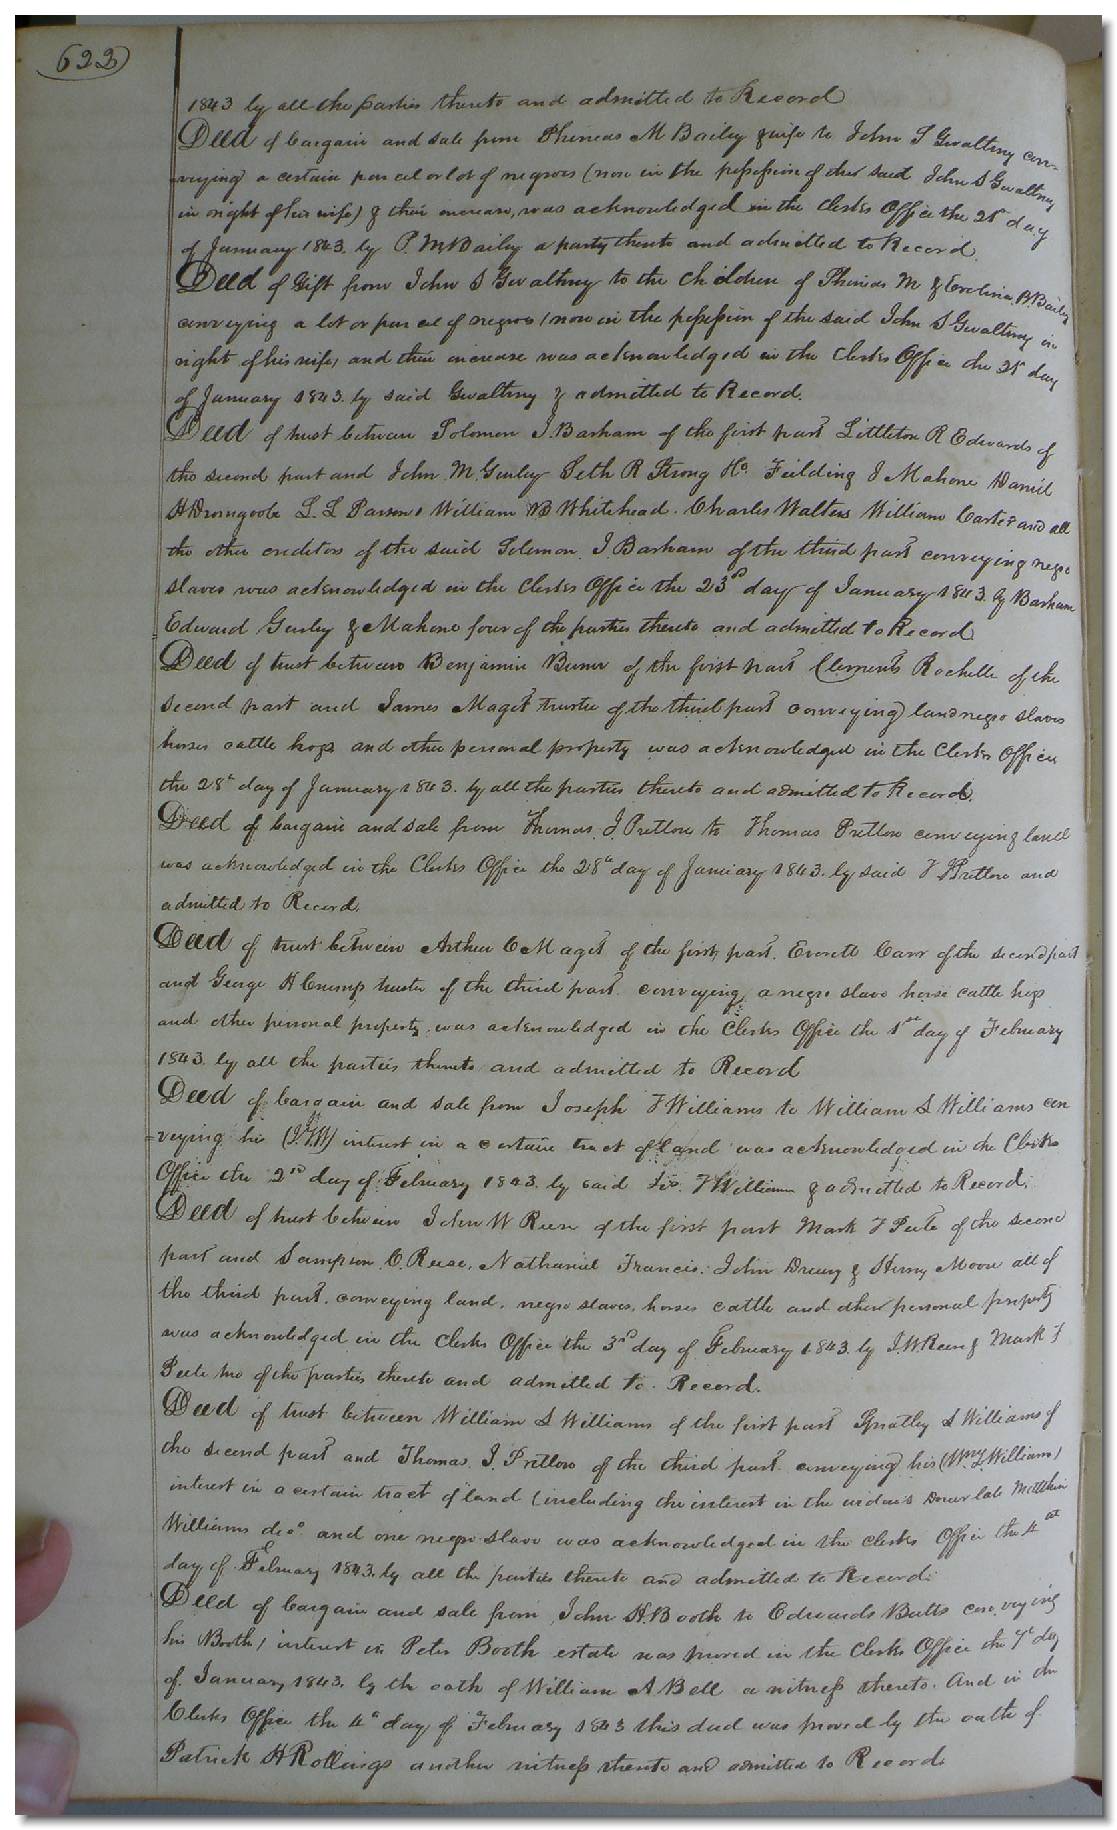 622
1843 by all the parties thereto and admitted to Record
Deed of bargain and sale from Phineas M Bailey & wife to John S Gwaltney con-
veying a certain parcel or lot of negroes (now in the possession of the said John S Gwaltney
in right of his wife) & their increase, was acknowledged in the Clerks Office the 21st day
of January 1843. by P. M Bailey a party thereto and admitted to Record.
Deed of Gift from John S Gwaltney to the children of Phineas M & Caroline B. Bailey
conveying a lot or parcel of negroes (now in the possession of the said John S Gwaltney in
right of his wife, and their increase was acknowledged in the Clerks Office the 21st day
of January 1843. by said Gwaltney & admitted to Record.
Deed of trust between Solomon J. Barham of the first part Littleton R Edwards of
the second part and John M. Gurley Seth R Strong Ho. Feilding J Mahone Daniel
H Dromgoole L. L Parsons William B Whitehead. Charles Walters William Carter and all
the other creditors of the said Solomon J Barham of the third part conveying negro
slaves was acknowledged in the Clerks Office the 23rd day of January 1843. by Barham
Edward Gurley & Mahone four of the parties thereto and admitted to Record
Deed of trust between Benjamin Bunn of the first part Clements Rochelle of the
second part and James Maget trustee of the third part conveying land negro slaves
horses cattle hogs and other personal property was acknowledged in the Clerks Office
the 28th day of January 1843. by all the parties thereto and admitted to Record.
Deed of bargain and sale from Thomas J Pretlow to Thomas Pretlow conveying land
was acknowledged in the Clerks Office the 28th day of January 1843. by said T J Pretlow and
admitted to Record.
Deed of trust between Arthur C Maget of the first part. Everett Carr of the second part
and George H Crump trustee of the third part conveying a negro slave horse cattle hogs
and other personal property. was acknowledged in the Clerks Office the 1st day of February
1843. by all the parties thereto and admitted to Record
Deed of bargain and sale from Joseph T Williams to William S Williams con
=veying his (J.T.W) interest in a certain tract of land was acknowledged in the Clerks
Office the 2nd day of February 1843. by said Jos. T William & admitted to Record.
Deed of trust between John W Reese of the first part Mark T Peete of the second
part and Sampson C. Reese, Nathaniel Francis. John Drewry & Henry Moore all of
the third part. conveying land. negro slaves, horses cattle and other personal property
was acknowledged in the Clerks Office the 3rd day of February 1843. by J. W. Reese & Mark T
Peete two of the parties thereto and admitted to Record.
Deed of trust between William S Williams of the first part S Williams of
the second part and Thomas. J. Pretlow of the third part. conveying his (Wm S William)
interest in a certain tract of land (including the interest in the widow's Dower late Matthew
Williams decd. and one negro slave was acknowledged in the Clerks Office the 4th
day of February 1843. by all the parties thereto and admitted to Record.
Deed of bargain and sale from John H. Booth to Edwards Butts conveying
his (Booth) interest in Peter Booth estate was proved in the Clerks Office the 7th day
of January 1843. by the oath of William A Bell a witness thereto. And in the
Clerks Office the 4th day of February 1843 this deed was proved by the oath of
Patrick H Rollings another witness thereto and admitted to Record.